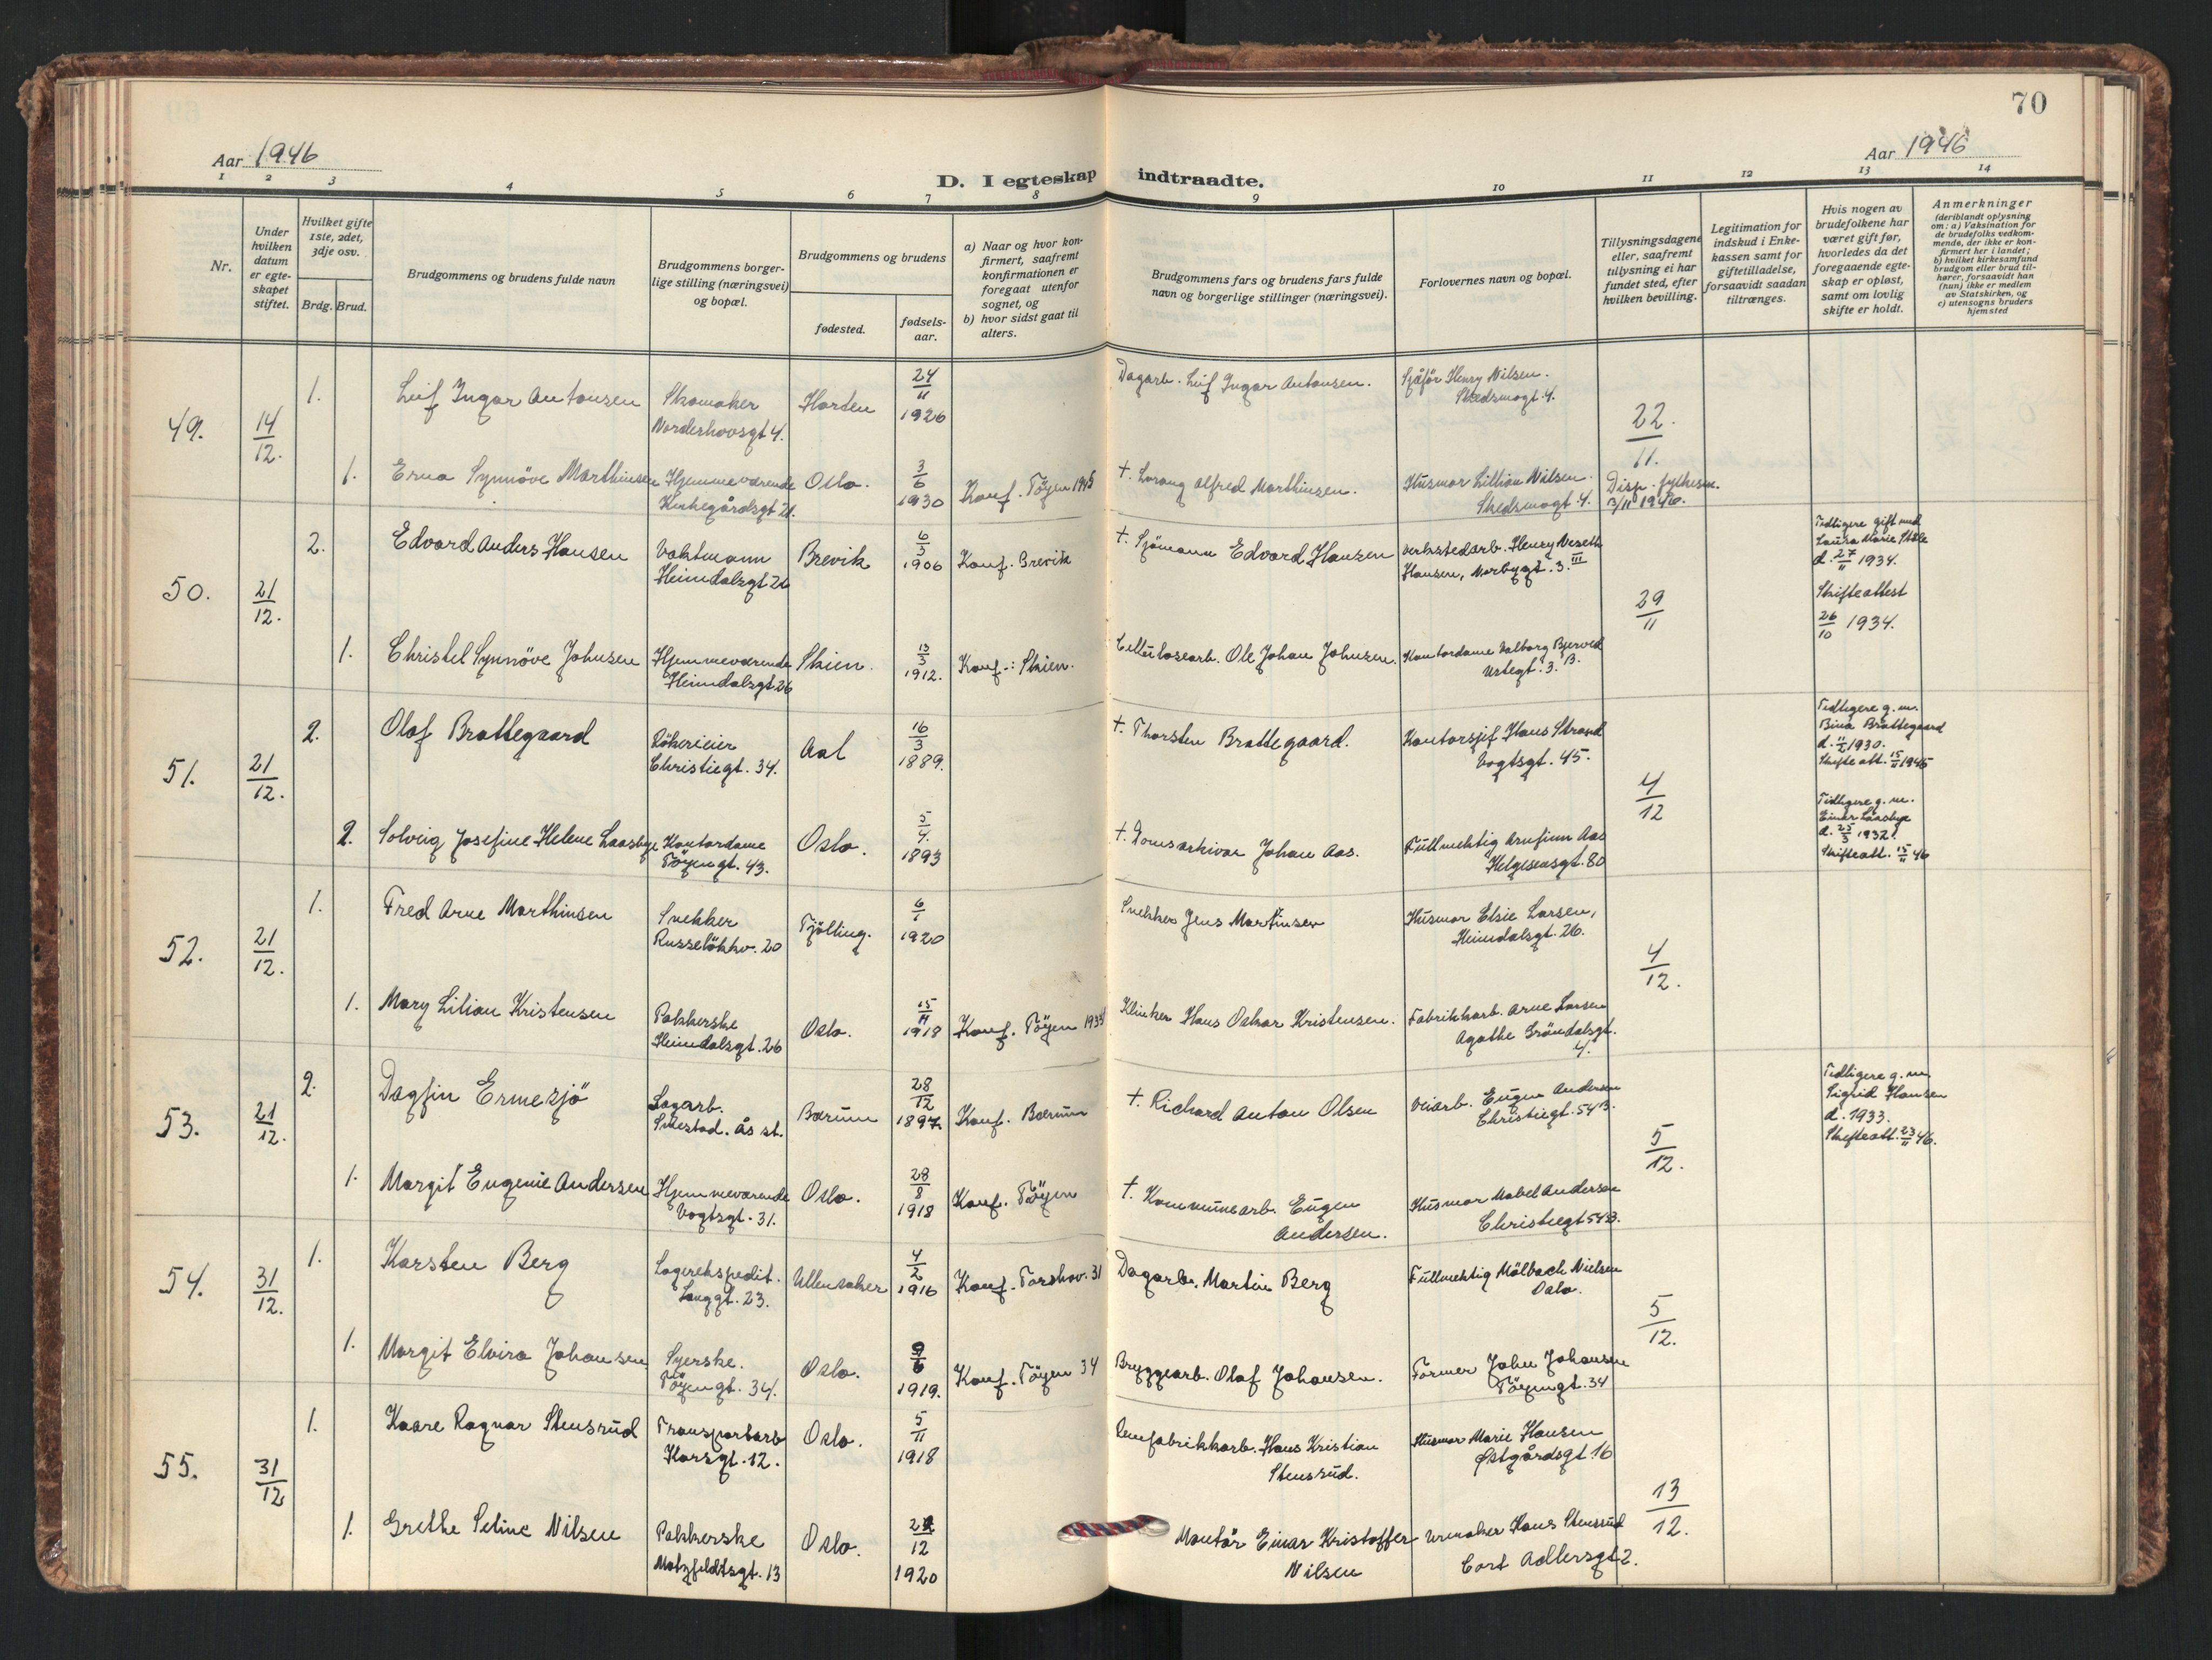 70
Aar 1946
Aar 1946
D. I egteskap indtraadte.
1 2 3 4 5 6 7 8 9 10 11 12 13 14
Nr.
Under hvilken datum er egteskapet stiftet.
Hvilket gifte 1ste, 2det, 3dje osv.
Brdg. Brud.
Brudgommens og brudens fulde navn
Brudgommens borgerlige stilling (næringsvei) og bopæl.
Brudgommens og brudens
fødested.
fødselsaar.
a) Naar og hvor konfirmert, saafremt konfirmationen er foregaat utenfor sognet, og
b) hvor sidst gaat til alters.
Brudgommens fars og brudens fars fulde navn og borgerlige stillinger (næringsvei).
Forlovernes navn og bopæl.
Tillysningsdagene eller, saafremt tillysning ei har fundet sted, efter hvilken bevilling.
Legitimation for indskud i Enkekassen samt for giftetilladelse, forsaavidt saadan tiltrænges.
Hvis nogen av brudefolkene har været gift før, hvorledes da det foregaaende egteskap er opløst, samt om lovlig skifte er holdt.
Anmerkninger
(deriblandt oplysning om: a) Vaksination for de brudefolks vedkommende, der ikke er konfirmert her i landet; b) hvilket kirkesamfund brudgom eller brud tilhører, forsaavidt han (hun) ikke er medlem av Statskirken, og c) utensogns bruders hjemsted
49. 14/12.
1. Leif Ingar Antonsen Skomaker Horten 24/11 1926 Dagarb. Leif Ingar Antonsen. Sjåfør Henry Nilsen.
Norderhovsgt 4. Skedsmogt. 4.
22/11.
1. Erna Synnöve Marthinsen Hjemmeværende Oslo. 3/6 1930 Konf. Töyen 1945 † Lorang Alfred Marthinsen. Husmor Lillian Nilsen. Disp. fylkesm.
Kirkegårdsgt 21. Skedsmogt. 4. 13/11 1946.
50. 21/12.
2. Edvard Anders Hansen Vaktmann Brevik 6/3 1906 Konf. Brevik †. Sjömann Edvard Hansen Verkstedarb. Henry Neseth
Heimdalsgt 26 Hansen, Norbygt. 3. III
Tidligere gift med
Laura Marie Ståle
d. 27/11 1934.
Skifteattest
26/10 1934.
29/11
1. Christel Synnöve Johnsen Hjemmeværende Skien. 13/3 1912. Konf.: Skien. Cellulosearb. Ole Johan Johnsen. Kontordame Valborg Bjerved
Heimdalsgt 26 Urtegt. 3. B.
51. 21/12.
2. Olaf Brattegaard Rökerieier Aal 16/3 1889. †. Thorsten Brattegaard. Kontorsjef Hans Strand
Christiegt. 34. Vogtsgt. 45.
Tidligere g. m.
Bina Brattegaard
d. 11/2 1930.
Skifteatt. 15/11 1945
4/12
2. Solveig Josefine Helene Laasbye Kontordame Oslo. 5/4. 1893 †. Domsarkivar Johan Aas. Fullmektig Arnfinn Aas
Töyengt. 43. Helgesensgt. 80
Tidligere g. m.
Einar Laasbye
d. 25/3 1932.
Skifteatt. 15/11 46
52. 21/12.
1. Fred Arne Marthinsen Snekker Tjölling. 6/1 1920 Snekker Jens Martinsen Husmor Elsie Larsen,
Russelökkv. 20 Heimdalsgt. 26.
4/12.
1. Mary Lilian Kristensen Pakkerske Oslo. 15/11 1918 Konf. Töyen 1934 Klinker Hans Oskar Kristensen. Fabrikkarb. Arne Larsen
Heimdalsgt. 26 Agathe Gröndalsgt.
4.
53. 21/12.
2. Dagfin Ermesjö Lagarb. Bærum 28/12 1897. Konf. Bærum †. Richard Anton Olsen Veiarb. Eugen Andersen
Ås st. Christiegt. 54 B.
Tidligere g. m.
Sigrid Hansen
d. 1933.
Skifteatt. 23/11 46.
5/12.
1. Margit Eugenie Andersen Hjemmeværende Oslo. 28/8 1918 Konf. Töyen †. Kommunearb. Eugen Husmor Mabel Andersen
Vogtsgt. 31. Andersen. Christiegt 54 B.
54. 31/12.
1. Karsten Berg Lagerekspedit. Ullensaker 4/2 1916 Konf. Torshov. 31 Dagarb. Martin Berg Fullmektig Mölbach Nielsen
Langgt. 23. Oslo.
5/12.
1. Margit Elvira Johansen Syerske. Oslo. 9/6 1919. Konf. Töyen 34 Bryggearb. Olaf Johansen. Former John Johansen
Töyengt. 34. Töyengt. 34
55. 31/12
1. Kaare Ragnar Stensrud Transportarb Oslo. 5/11 1918 Hans Kristian Husmor Marie Hansen
Korsgt. 12. Stensrud. Østgårdsgt. 16
13/12.
1. Grethe Seline Nilsen Pakkerske Oslo. 12 1920 Montör Einar Kristoffer Urmaker Hans Stensrud
Motzfeldtsgt. 13 Nilsen Cort Adlersgt 2.